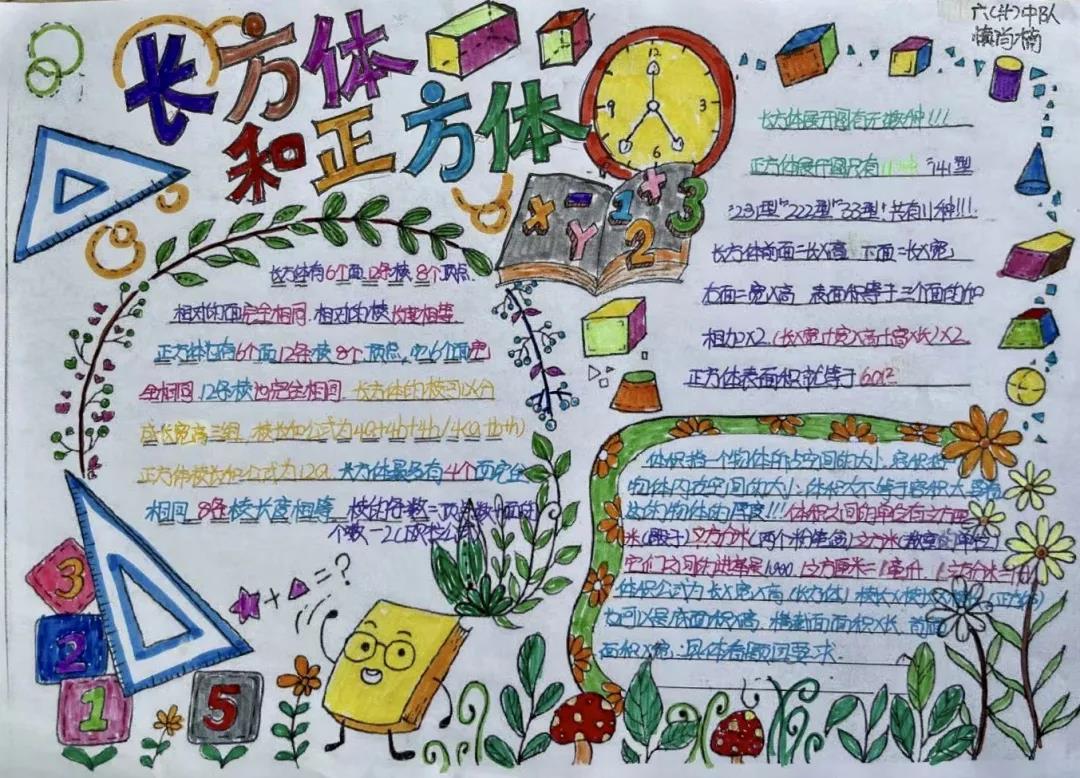 六(廿)中队
长方体
和正方体
12
3
6
9
X - Y 1 + 2 3
长方体展开图有无数种!!!
正方体展开图只有11种 "141型
"231型""222型""33型"共有11种!!!
长方体前面=长X高 下面=长X宽
右面=宽X高 表面积等于三个面的和
相加X2 (长X宽+宽X高+高X长)X2
正方体表面积就等于6a²
长方体有6个面 12条棱 8个顶点
相对的面完全相同.相对的棱长度相等
正方体也有6个面12条棱8个顶点,它6个面完
全相同 12条棱也完全相同 长方体的棱可以分
成长宽高三组 棱长和公式为4a+4b+4h/4(a+b+h)
正方体棱长和公式为12a 长方体最多有4个面完全
相同 8条棱长度相等 棱的条数=顶点数+面的
个数-2(欧拉公式)
体积指一个物体所占空间的大小.容积指
物体内在空间的大小.体积大不等于容积大 要看
此物体的厚度!!!体积之间的单位有立方厘
米(骰子)立方分米(两个粉笔盒)立方米(教室的单位)
它们之间的进率是1000 1立方厘米=1毫升 1立方分米=
体积公式为长X宽X高(长方体) 棱长X棱长X (正方体)
也可以是底面积X高 横截面面积X长 前面
面积X宽.具体看题目要求.
+ =?
3
2
1
5